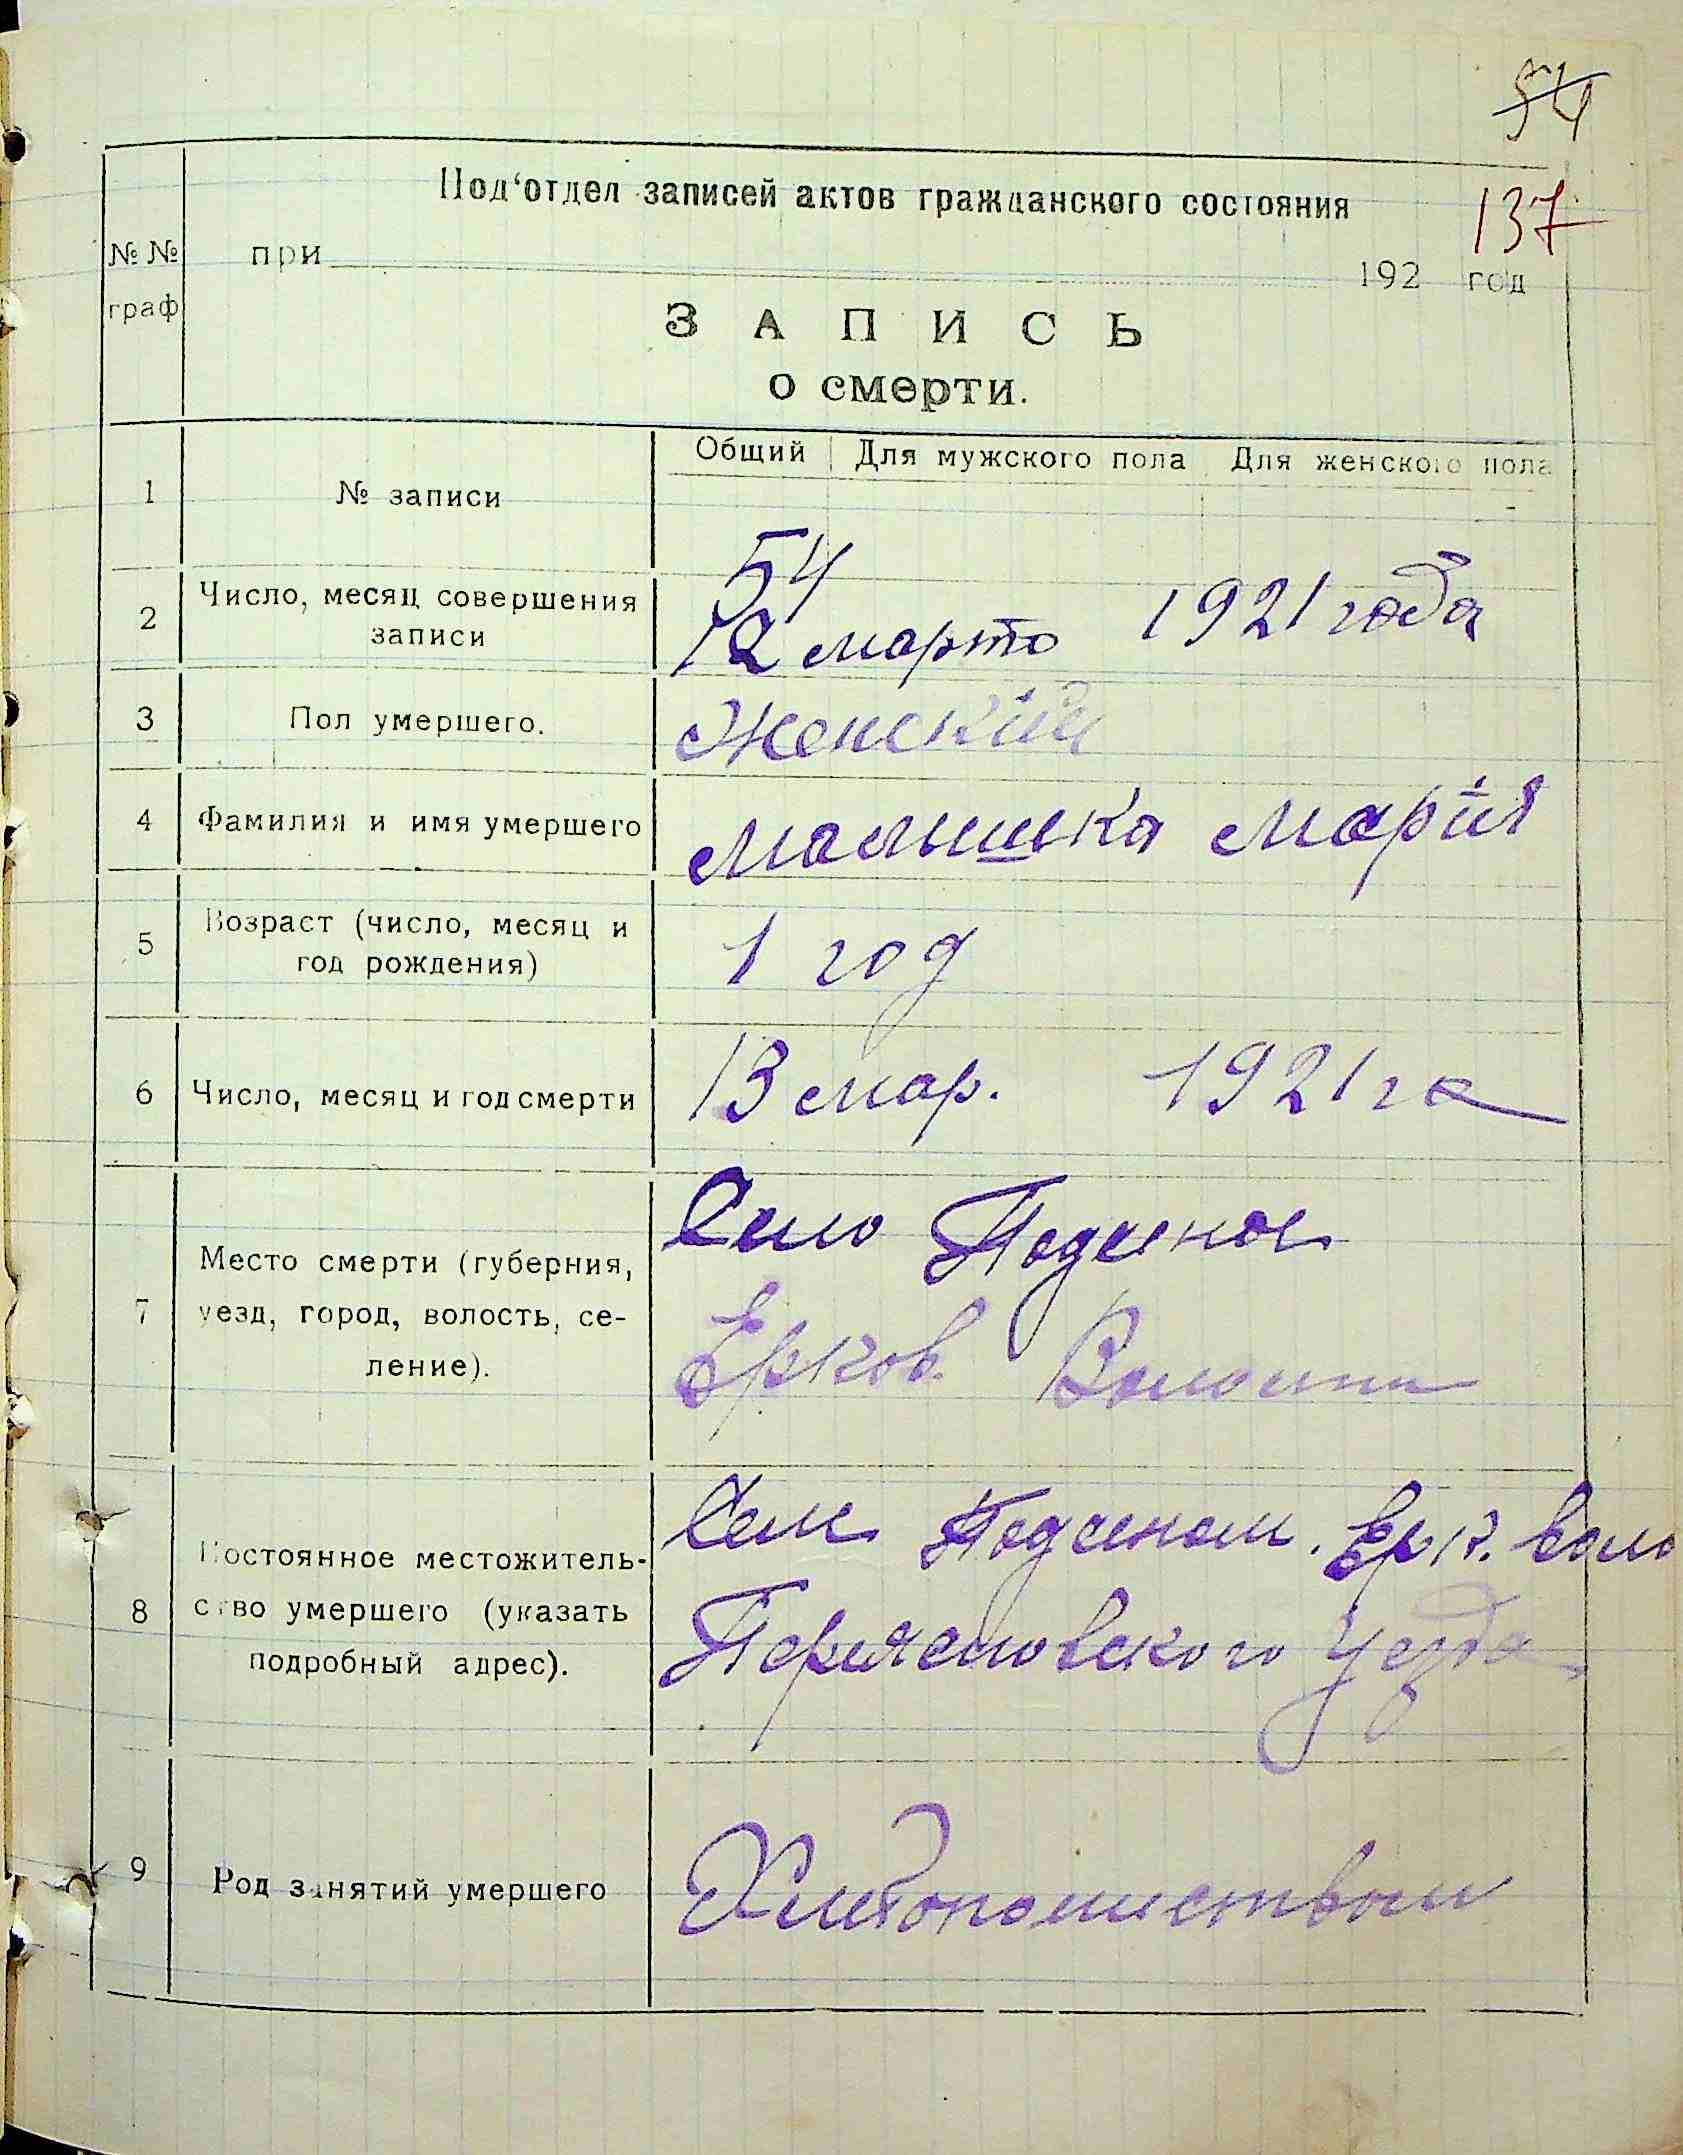 54
137
Под‘отдел записей актов гражданского состояния
№ № граф
при 192 год
ЗАПИСЬ
о смерти.
Общий Для мужского пола Для женского пола
1 № записи
54
2 Число, месяц совершения записи
12 марта 1921 года
3 Пол умершего.
Женский
4 Фамилия и имя умершего
Малышка Марія
5 Возраст (число, месяц и год рождения)
1 год
6 Число, месяц и год смерти
13 мар. 1921 га
7 Место смерти (губерния, уезд, город, волость, се-
ление).
Село Подсеное
Ерков. Волости
8 Постоянное местожитель-
ство умершего (указать подробный адрес).
Селе Подсеном. Ерк. воло
Переясловского уезда
9 Род занятий умершего
Хлебопашеством